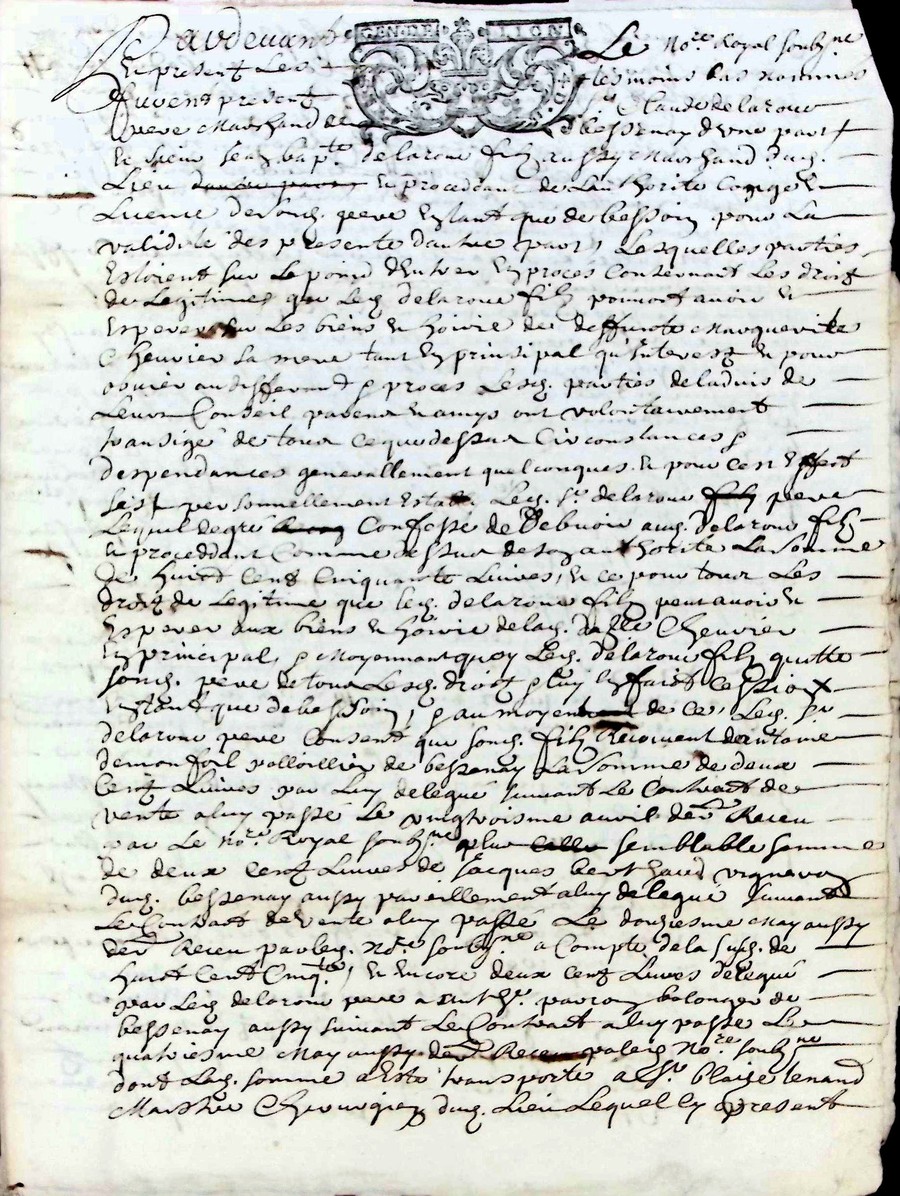 Pardevant GEN. DE LION Le no.re Royal soubz.ne
Et present Les tesmoins bas nommés
furent present s.r Claude delaroue
pere Marchand de bessenay d'une part
Et sieur Jean bap.te delaroue filz aussy Marchand dud.
Lieu en proceddant de Lauthorite Congé Et
Licence de soud. pere Entant que de bessoin pour La
validité des presente dautre part, Lesquelles parties
Estoient sur Le poind dEntrer En proces Consernant Les droit
de Legitimes que Led. delaroue filz pouvoit avoir Et
Esperer sur Les biens Et hoirie de deffuncte Marguerite
Cheuvier sa mere tant En prinsipal qu'Interestz Et pour
obvier au differand & proces Lesd. parties de ladvis de
Leurs Conseil parens Et amys ont volontairement
transigé de tour ce que dessus Circonstances &
despendances generallement quelconques. Et pour cest Effect
sest personnellement Estably Led. s.r delaroue filz pere
Lequel de gré Confesse de Debvoir aud. delaroue filz
Et proceddant Comme dessus de son authorité La somme
de huict Cent Cinquante Livres, Et ce pour tour Les
droitz de Legitime que led. delaroue filz peut avoir Et
Esperer aux biens Et hoirie de lad. delle Cheuvier
En prinsipal, & Moyennant quoy Led. delaroue filz quitte
soud. pere de tour Lesd. droitz & luy En faict Cession
Entant que de bessoin, & au moyen de ce, Led. s.r
delaroue pere Consent que soud. filz Recoivent dentoine
demonfoil vollaillier de bessenay La somme de deux
Centz Livres par Luy delegué suivant Le Contract de
vente a luy passé Le vingtroisme avril der.r Receu
par Le no.re Royal soubz.ne plus semblable somme
de deux Centz Livres de Jacques berthaud vigneron
dud. bessenay aussy pareillement a luy delegué suivant
Le Contract de vente a luy passé Le douziesme May aussy
der.r Receu par led. No.re soubz.ne a Compte de la sud. de
huict Cent Cinq.te, Et Encore deux Centz Livres delegué
par Led. delaroue pere a bolonger de
bessenay aussy suivant Le Contract a luy passé Le
quatriesme May aussy der.r Receu par led. No.re soubz.ne
dont Lad. somme a Esté transporté a s.r blaise tenand
Maistre Chirurgien dud. Lieu Lequel Cy present